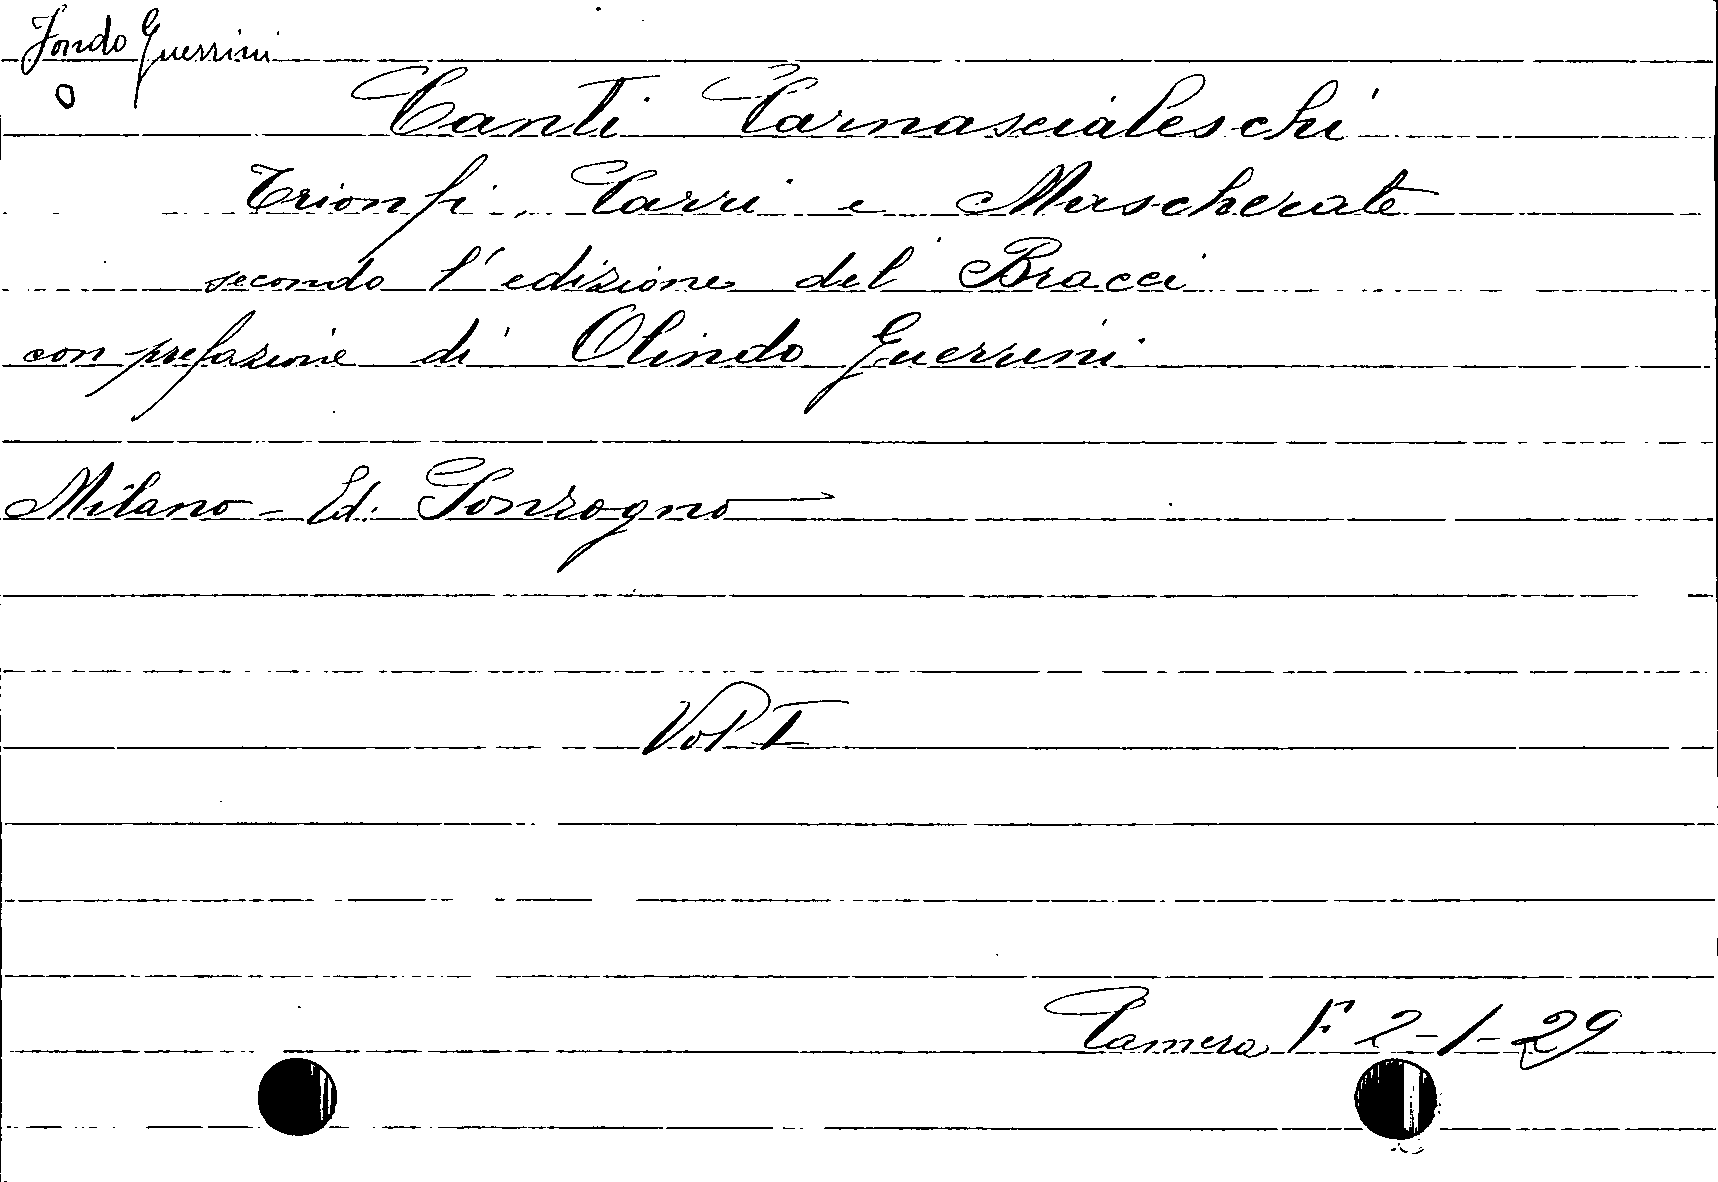 Fondo Guerrini
O
Canti Carnascialeschi
Trionfi, Carri e Mascherate
secondo l'edizione del Bracci
con prefazione di Olindo Guerrini
Milano - Ed. Sonzogno
Vol I
Camera F 2-1-29